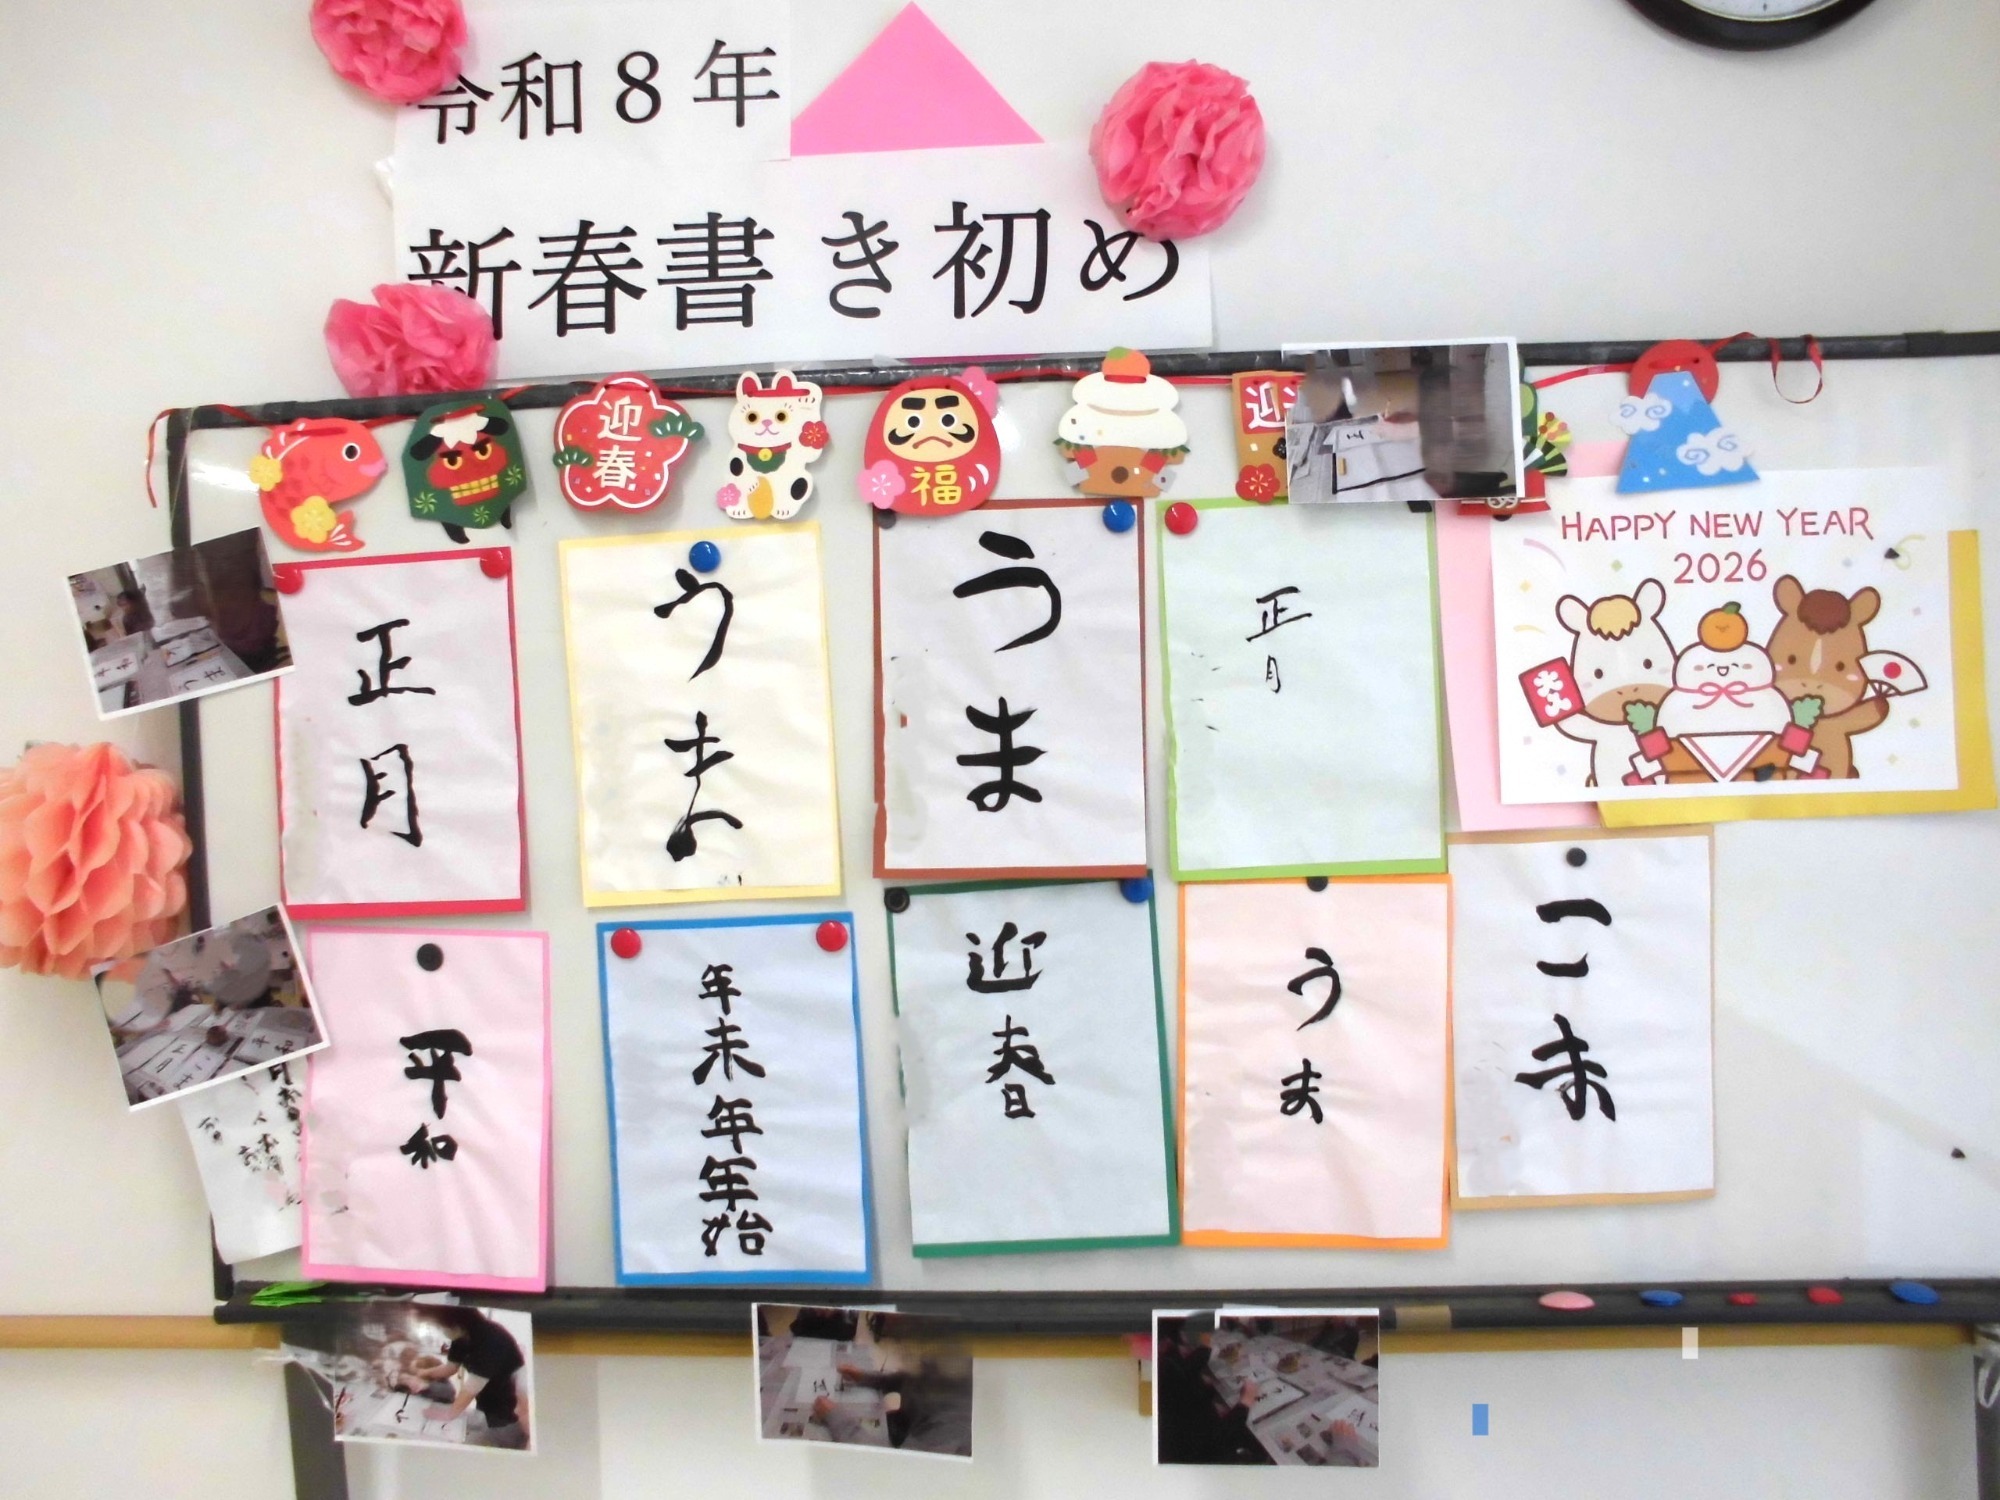 令和8年
新春書き初め
迎春
福
迎
HAPPY NEW YEAR
2026
正月
うま
うま
正月
平和
年末年年始
迎春
うま
こま